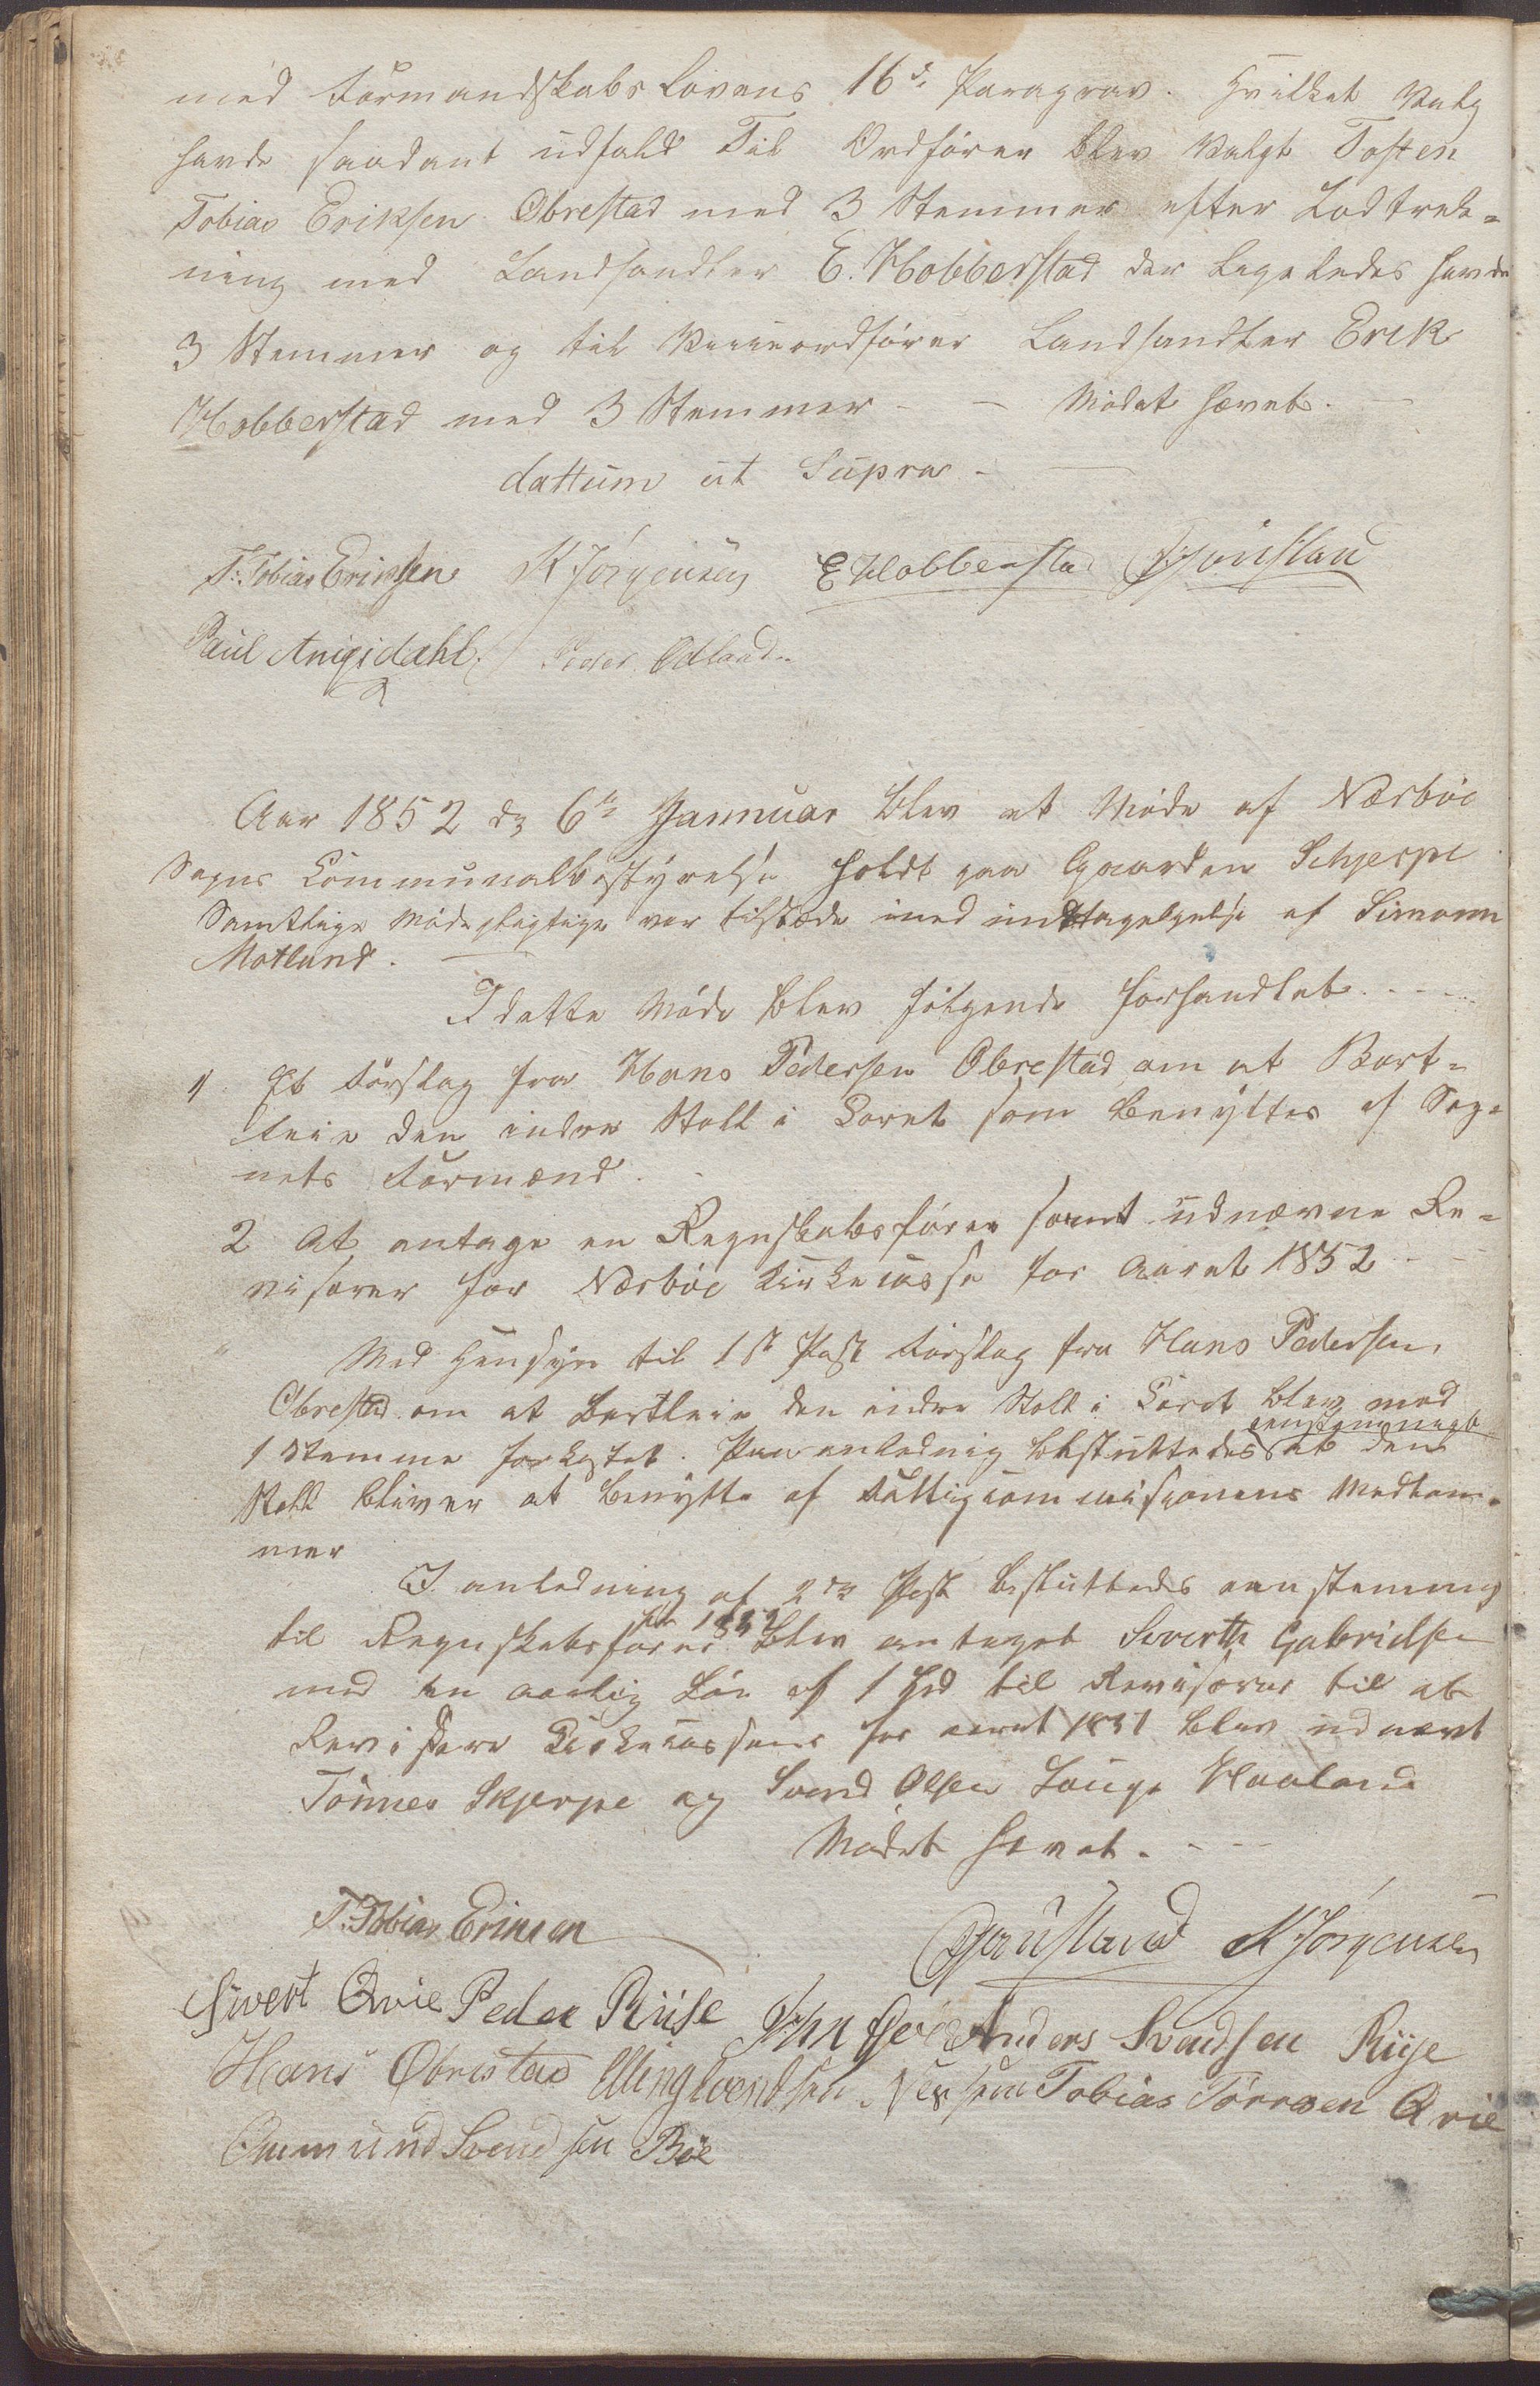 med Formandskabs Lovens 16de Paragrav. Hvilket Valg
havde saadant udfald Til Ordfører blev Valgt Tosten
Tobias Eriksen Obrestad med 3 Stemmer efter Lodtræk-
ning med Landhandler E. Hobberstad der ligeledes havde
3 Stemmer og til Viceordfører Landhandler Erik
Hobberstad med 3 Stemmer - - Mødet hævet. -
dattum ut Supra -
T. Tobias Eriksen K Jörgensen E Hobberstad
Paul Anigsdahl. Peder Odland.
Aar 1852 d. 6te Jannuar blev et Møde af Nærbøe
Sogns Communalbestyrelse holdt paa Gaarden Schjerpe
Samtlige Mødepligtige var tilstæde med undtagelgelse af Simonn
Motland.
I dette Møde blev følgende forhandlet - - -
1/ Et Forslag fra Hans Pedersen Obrestad om at Bort-
leie den indre Stoll i Coret som benyttes af Sog-
nets Formænd.
2 At antage en Regnskabsfører samt udnævne Re-
visorer for Nærbøe Kirkecasse for Aaret 1852 - -
Med Hensyn til 1ste Post Forslag fra Hans Pedersen
Obrestad om at Bortleie den indre Stoll i Coret blev med
eenstemmigt
1 Stemme forkastet. Paa anledning besluttedes at den
Stoll bliver at benytte af Fattigcommissionens Medlem-
mer
I anledning af 2den Post besluttedes eenstemmig
for 1852
til Regnskabsfører blev antaget Siverth Gabrielsen
med en aarlig Løn af 1 Spd til Revisorer til at
Revisere Kirkecassens for aaret 1851 blev udnævnt
Tönnes Skjerpe og Svend Olsen Houland
Mødet hævet. - - -
T. Tobias Eriksen K Jörgensen
Sivert Qvie Peder Riise Anders Svendsen Riise
Hans Obrestad Elling Svendsen Tobias Törresen Qvie
Ommund Svendsen Böe